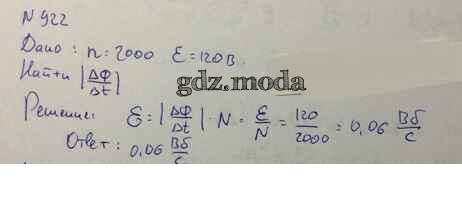 N 922
Дано: n = 2000 Ɛ = 120В.
Найти |ΔΦ/Δt|
gdz.moda
Решение: Ɛ = |ΔΦ/Δt| · N = Ɛ/N = 120/2000 = 0,06 Вб/с
Ответ: 0,06 Вб/с